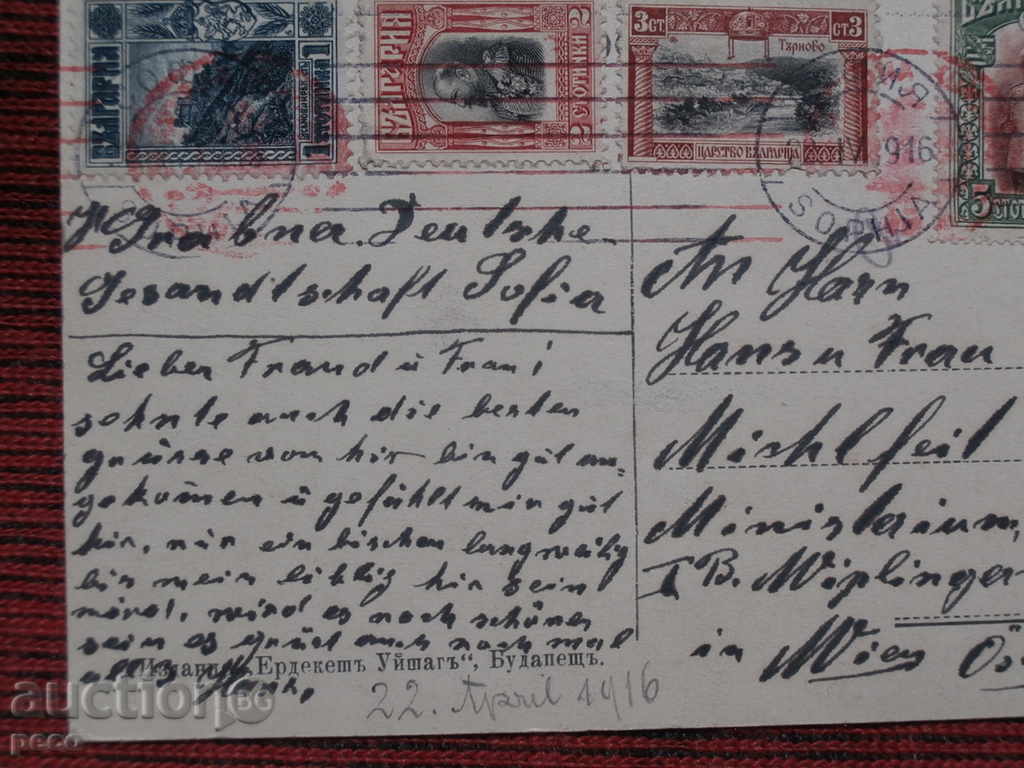 БЪЛГАРИЯ
1
БЪЛГАРИЯ
2 СТОТИНКИ 2
3СТ СТ3
Търново
ЦАРСТВО БЪЛГАРИЯ
5
916
SOPHIA
Grabner. Deutshe
Gesandtschaft Sofia
Lieber Fraund u Frau!
die besten
grüsse von hir bin gut an-
gekomen u gefühlt mir gut
hir, nur ein bischen langweilig
bis mein hir sein
wird, wird es noch schöner
sein es grüst auch noch mal
alles Hans,
An Harn
Hans u Frau
Michlfeit
Ministerium,
I B. Wiplinger
in Wien
Издание „Ердекетъ Уйшагъ“, Будапещъ.
22. April 1916
auction BG
peco